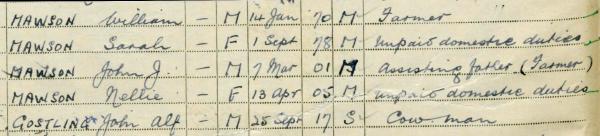 MAWSON William – M 14 Jan 70 M Farmer
MAWSON Sarah – F 1 Sept 78 M unpaid domestic duties
MAWSON John J. – M 7 Mar 01 M Assisting father (Farmer)
MAWSON Nellie – F 13 Apr 05 M unpaid domestic duties
GOSTLING John Alf – M 25 Sept 17 S Cow man